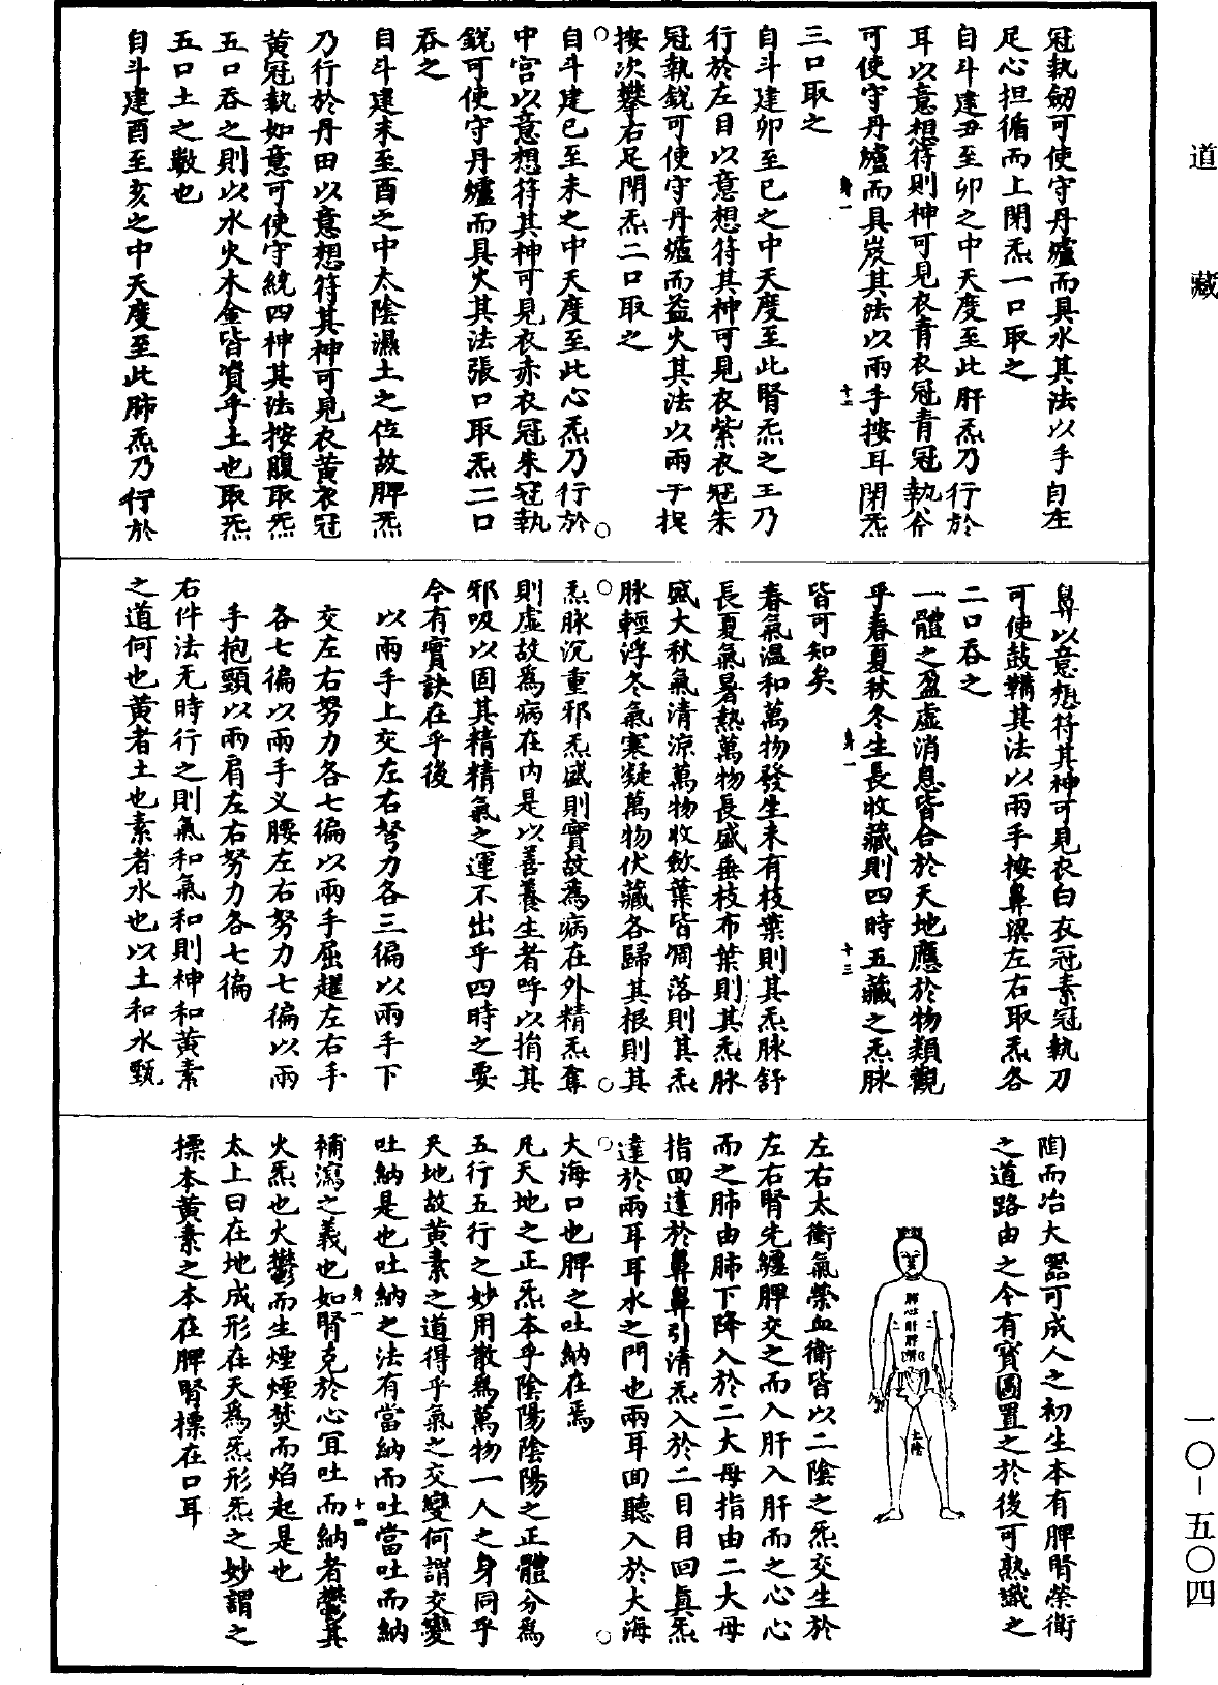 道藏
冠執劒可使守丹爐而具水其法以手自左
足心担循而上閉炁一口取之
自斗建丑至卯之中天度至此肝炁乃行於
耳以意想符則神可見衣青衣冠青冠執斧
可使守丹爐而具炭其法以兩手按耳閉炁
三口取之
自斗建卯至巳之中天度至此腎炁之王乃
行於左目以意想符其神可見衣紫衣冠朱
冠執銳可使守丹爐而益火其法以兩手捉
按次攀右足閉炁二口取之
自斗建巳至未之中天度至此心炁乃行於
中宮以意想符其神可見衣赤衣冠朱冠執
銳可使守丹爐而具火其法張口取炁二口
吞之
自斗建未至酉之中太陰濕土之位故脾炁
乃行於丹田以意想符其神可見衣黃衣冠
黃冠執如意可使守統四神其法按腹取炁
五口吞之則以水火木金皆資乎土也取炁
五口土之數也
自斗建酉至亥之中天度至此肺炁乃行於
身一
十二
鼻以意想符其神可見衣白衣冠素冠執刀
可使鼓鞴其法以兩手按鼻與左右取炁各
二口吞之
一體之盈虛消息皆合於天地應於物類觀
乎春夏秋冬生長收藏則四時五藏之炁脉
皆可知矣
春氣溫和萬物發生未有枝葉則其炁脉舒
長夏氣暑熱萬物長盛垂枝布葉則其炁脉
盛大秋氣清涼萬物收斂葉皆凋落則其炁
脉輕浮冬氣寒凝萬物伏藏各歸其根則其
炁脉沉重邪炁盛則實故為病在外精炁奪
則虛故為病在內是以善養生者呼以捐其
邪吸以固其精精氣之運不出乎四時之要
今有實訣在乎後
以兩手上交左右努力各三徧以兩手下
交左右努力各七徧以兩手屈趯左右手
各七徧以兩手义腰左右努力七徧以兩
手抱頸以兩肩左右努力各七徧
右件法无時行之則氣和氣和則神和黃素
之道何也黃者土也素者水也以土和水甄
身一
十三
陶而冶大器可成人之初生本有脾腎榮衛
之道路由之今有寶圖置之於後可熟識之
脾心肝脾
土陰
左右太衝氣榮血衛皆以二陰之炁交生於
左右腎先纏脾交之而入肝入肝而之心心
而之肺由肺下降入於二大母指由二大母
指回達於鼻鼻引清炁入於二目目回真炁
達於兩耳耳水之門也兩耳回聽入於大海
大海口也脾之吐納在焉
凡天地之正炁本乎陰陽陰陽之正體分為
五行五行之妙用散為萬物一人之身同乎
天地故黃素之道得乎氣之交變何謂交變
吐納是也吐納之法有當納而吐當吐而納
補瀉之義也如腎克於心宜吐而納者鬱其
火炁也火鬱而生煙煙焚而焰起是也
太上曰在地成形在天為炁形炁之妙謂之
摽本黃素之本在脾腎摽在口耳
身一
十四
一〇-五〇四